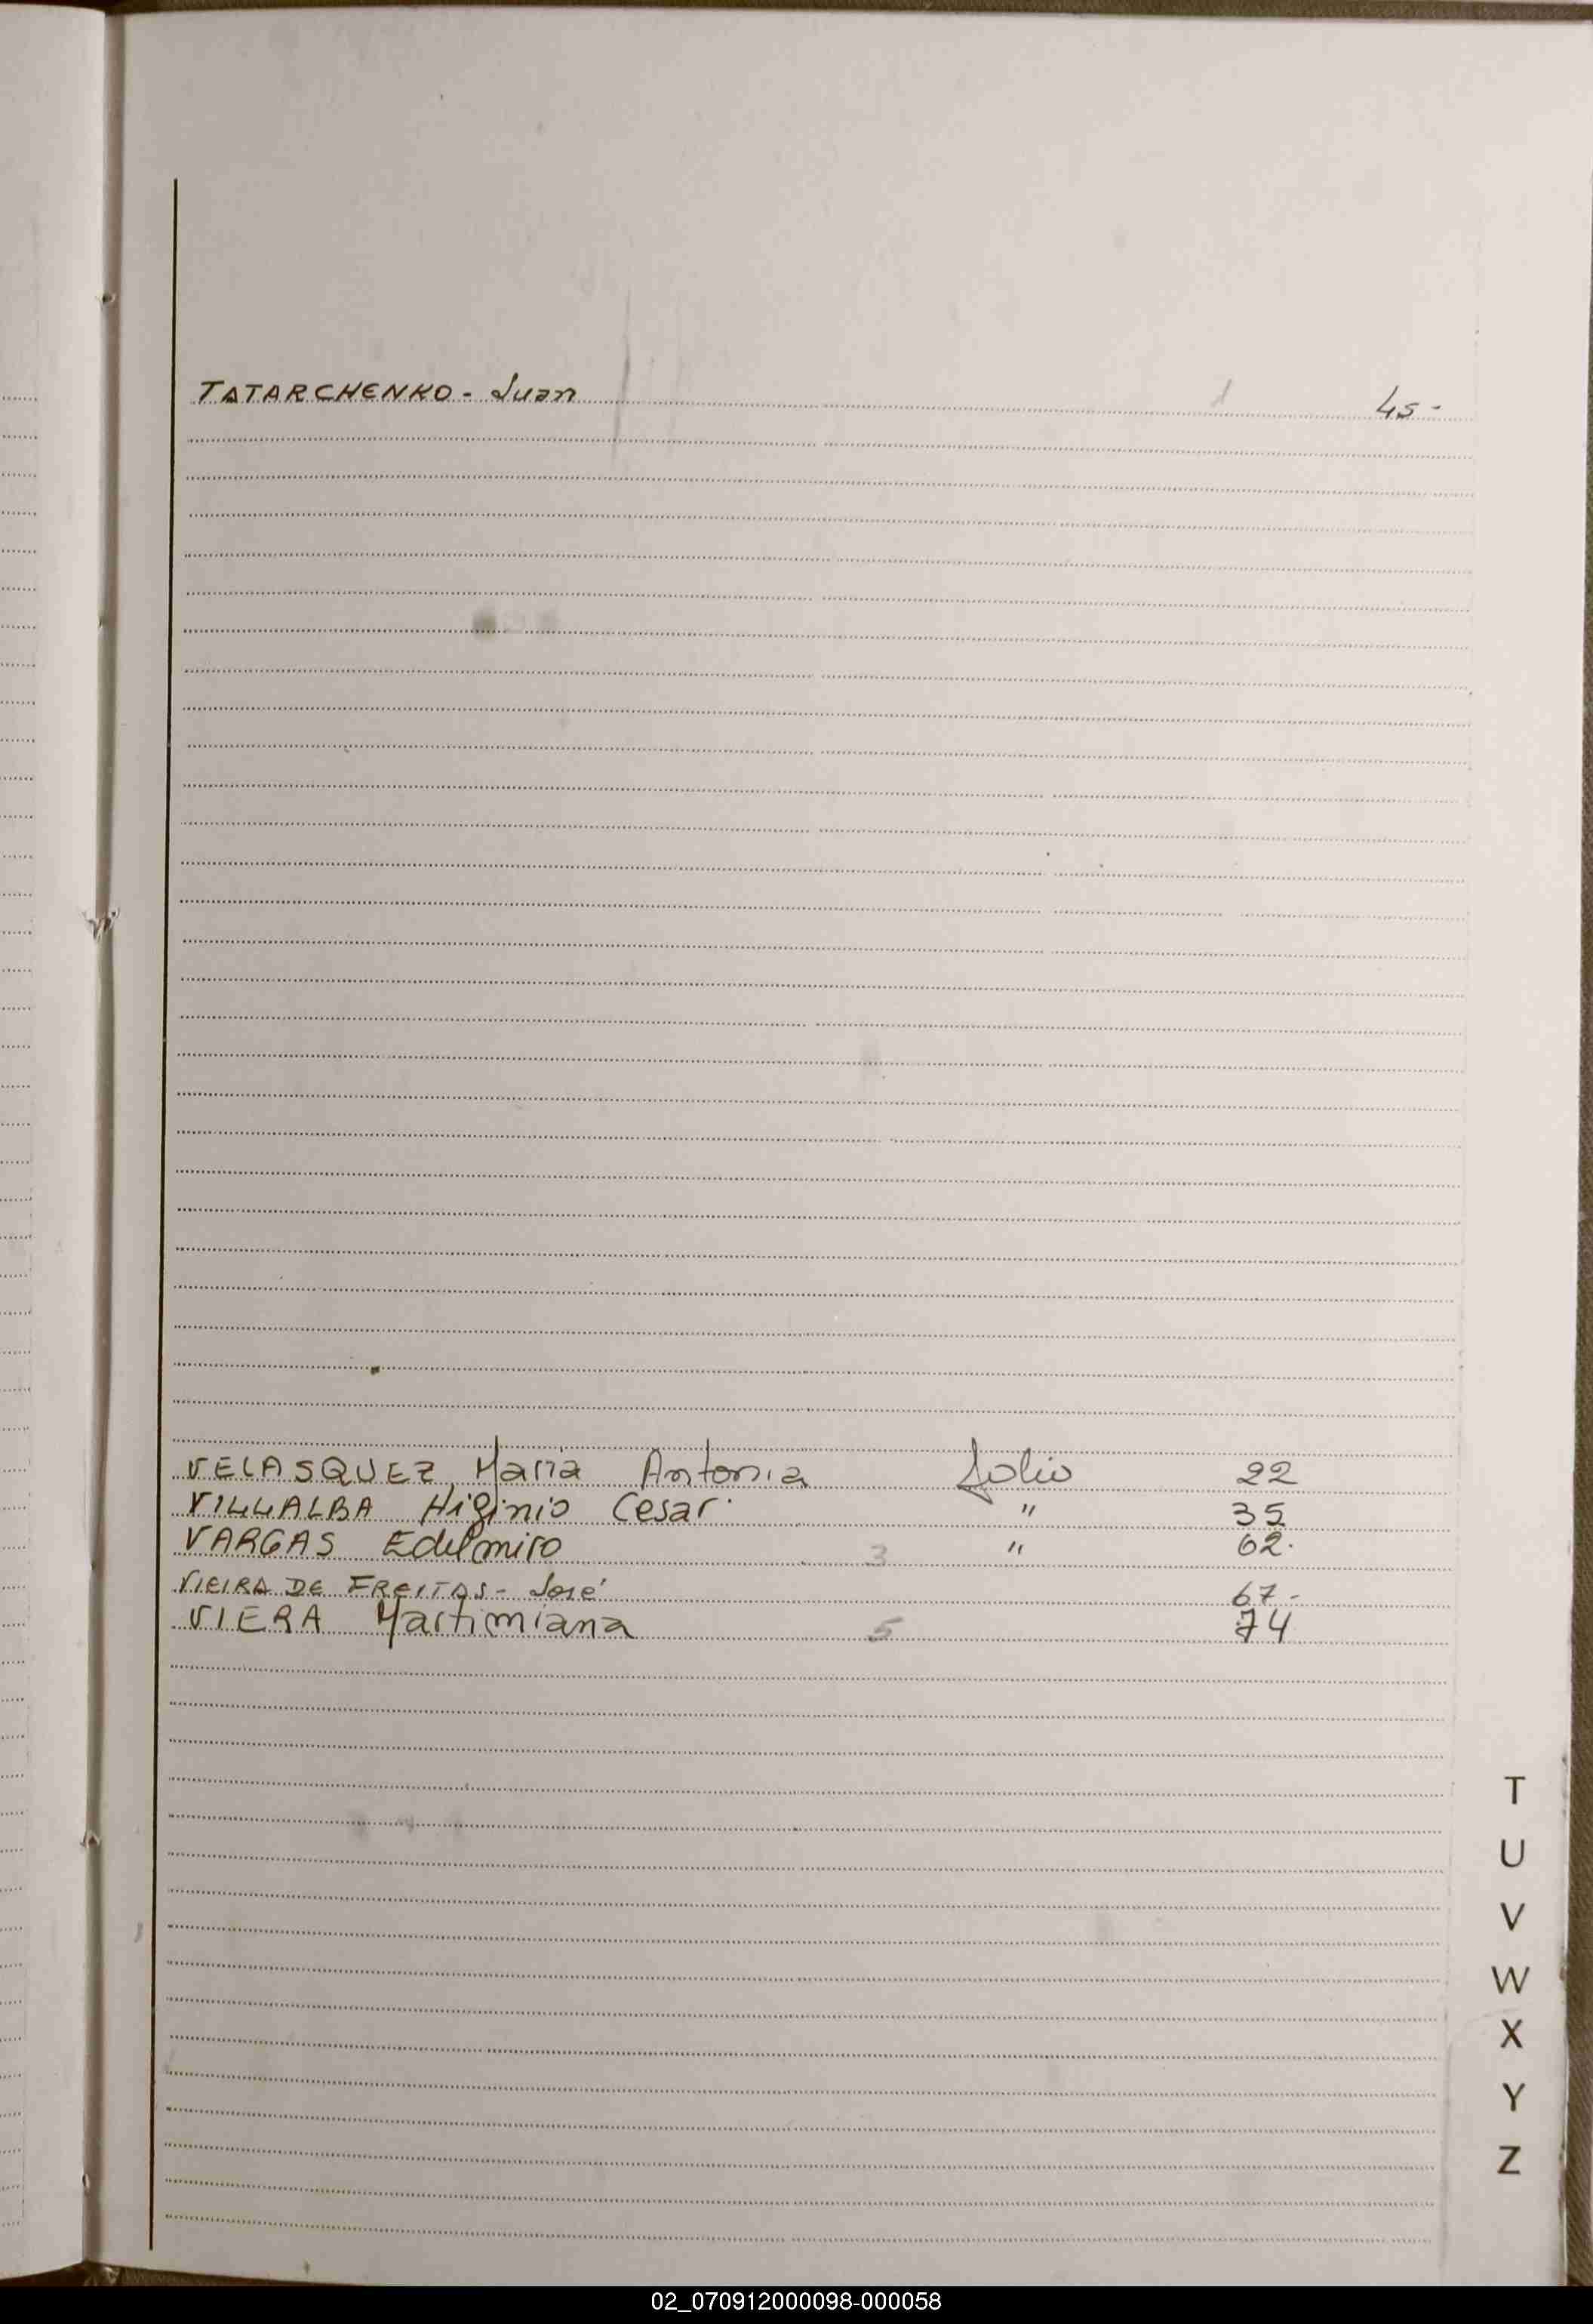 TATARCHENKO - Juan 1 45 -
VELASQUEZ Maria Antonia folio 22
VILLALBA Higinio Cesar. " 35
VARGAS Edelmiro 3 " 62.
VIEIRA DE FREITAS - José 67 -
VIERA Martimiana 5 74
T
U
V
W
X
Y
Z
02_070912000098-000058